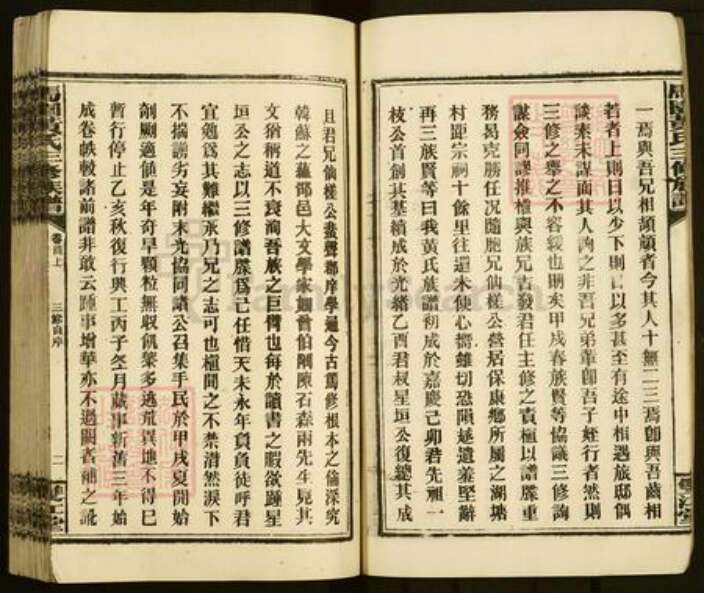 一焉與吾兄相頡頏者今其人十無二三焉卽與吾齒相
若者上則日以少下則日以多甚至有途中相遇旅邸偶
談素未謀面其人詢之非吾兄弟輩卽吾子姪行者然則
三修之舉之不容緩也明矣甲戌春族賢等協議三修詢
謀僉同謬推權與族兄吉發君任主修之責權以譜牒重
務曷克勝任况隨胞兄仙槎公營居保康鄉所屬之湖塘
村距宗祠十餘里往還未便心嚮雖切恐隕延遺羞堅辭
再三族賢等曰我黃氏族譜初成於嘉慶己卯君先祖一
枝公首創其基續成於光緒乙酉君叔星垣公復總其成
且君兄仙槎公蜚聲郡庠學通今古篤修根本之倫深究
韓蘇之蘊邵邑大文學家如曾伯剛陳石森兩先生見其
文猶稱道不衰洵吾族之巨擘也每於讀書之暇欲踵星
垣公之志以三修譜牒爲己任惜天未永年負負徒呼君
宜勉爲其難繼永乃兄之志可也權聞之不禁潸然淚下
不揣譾劣妄附末光協同諸公召集手民於甲戌夏開始
剞劂適値是年奇旱顆粒無收飢黎多逃荒異地不得已
暫行停止乙亥秋復行興工丙子冬月蕆事新舊三年始
成卷帙較諸前譜非敢云踵事增華亦不過闕者補之訛
氏三修族譜
卷首上
三修自序
二